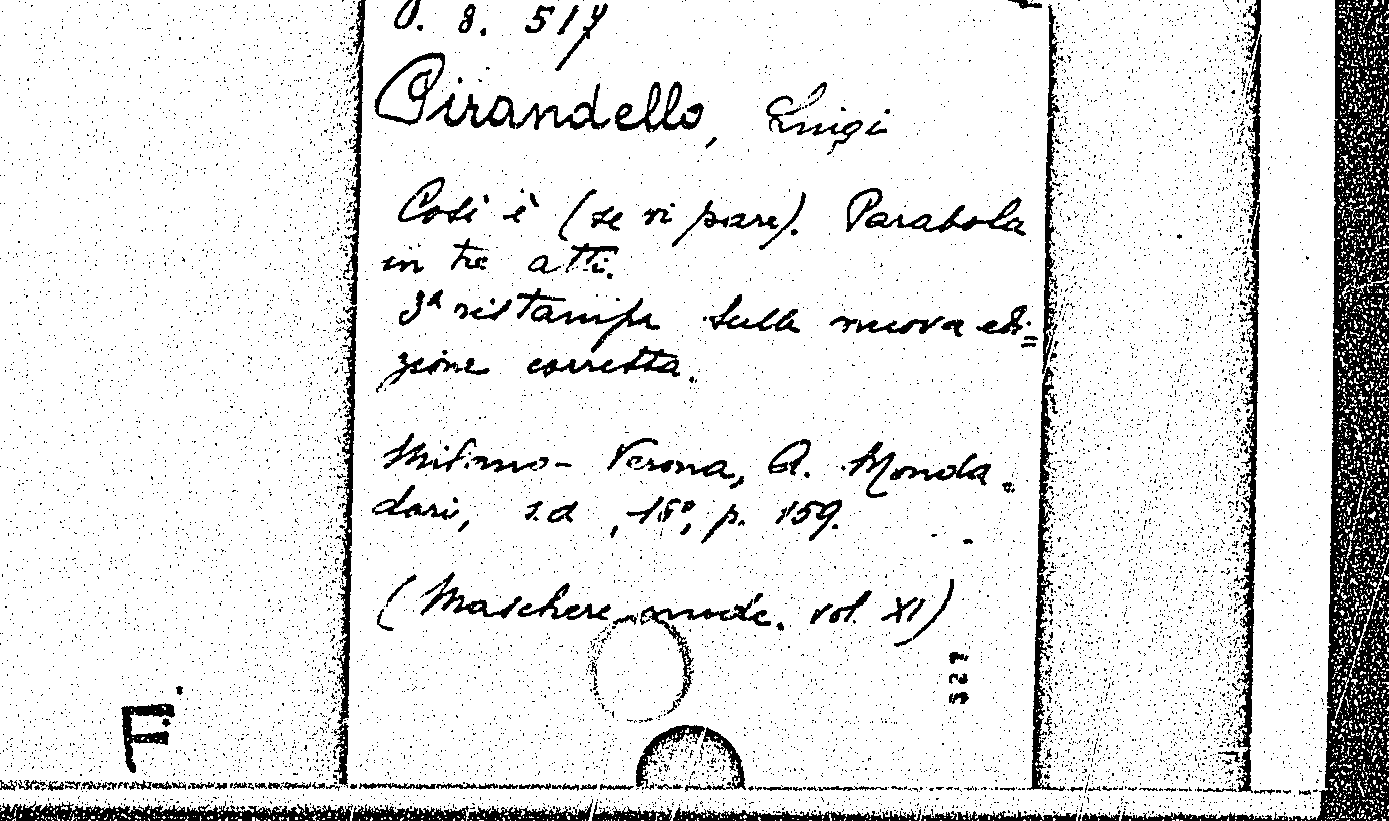 O. 8. 517
Pirandello, Luigi
Così è (se vi pare). Parabola
in tre atti.
3ª ristampa sulla nuova edi=
zione corretta.
Milano - Verona, A. Monda.
dori, s.d., 16°, p. 159.
(Maschere nude. vol. XI)
527
F